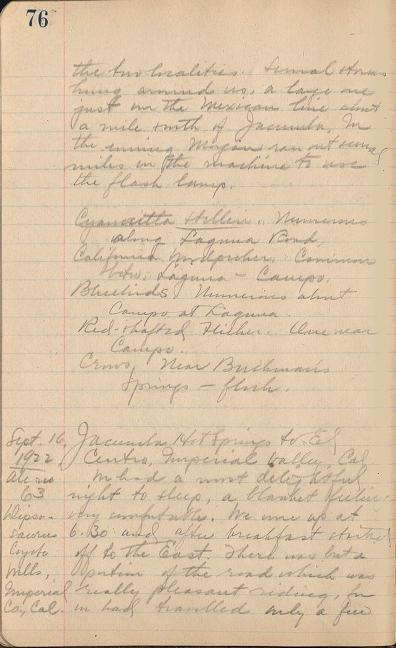 76
the two localities. Several storms
hung around us, a large one
just over the Mexican line about
a mile south of Jacumba. In
the evening Morgan ran out some
miles in the machine to use
the flash lamp.
Cyanocitta Stelleri. Numerous
along Laguna Road,
California Woodpeckers. Common
Laguna - Campo.
Bluebirds Numerous about
Campo at Laguna.
Red-shafted Flicker. One near
Campo.
Crows, Near Buckman's
Springs - flock.
Sept. 16,
1922
63
Dipso-
saurus
Coyote
Wells,
Imperial
Co., Cal.
Jacumba Hot Springs to El
Centro, Imperial Valley, Cal.
had a most delightful
night to sleep, a blanket feeling
very comfortable. We were up at
6.30 and after breakfast started
off to the East. There was but a
portion of the road which was
really pleasant riding, for
we had travelled only a few